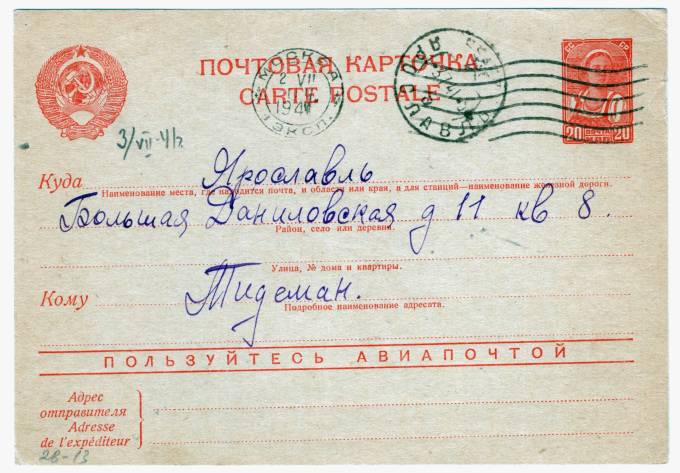 ПОЧТОВАЯ КАРТОЧКА
CARTE POSTALE
МОСКВА
2 VII
194
ЭКСП.
ЯРОСЛАВЛЬ
СС СР
20 ПОЧТА 20
3/VII-41г.
Куда Ярославль
Наименование места, где находится почта, и области или края, а для станций—наименование железной дороги.
Большая Даниловская д 11 кв 8.
Район, село или деревня.
Улица, № дома и квартиры.
Кому Тидеман.
Подробное наименование адресата.
ПОЛЬЗУЙТЕСЬ АВИАПОЧТОЙ
Адрес
отправителя
Adresse
de l'expéditeur
28-13